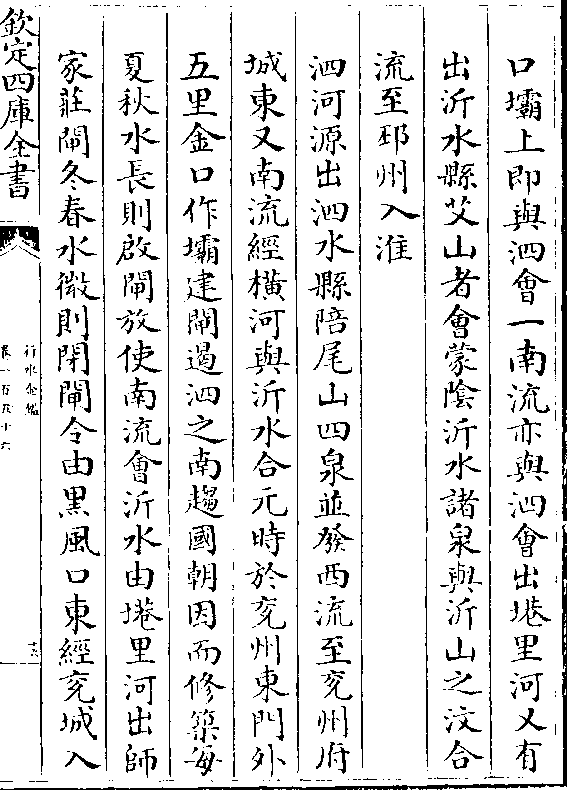 口壩上即與泗會一南流亦與泗會出塂里河又有
出沂水縣艾山者會蒙陰沂水諸泉與沂山之汶合
流至邳州入淮
泗河源出泗水縣陪尾山四泉並發西流至兖州府
城東又南流經横河與沂水合元時於兖州東門外
五里金口作壩建閘遏泗之南趨國朝因而修築每
夏秋水長則啟閘放使南流會沂水由塂里河出師
家莊閘冬春水微則閉閘令由黑風口東經兖城入
欽定四庫全書
行水金鑑
卷一百五十六